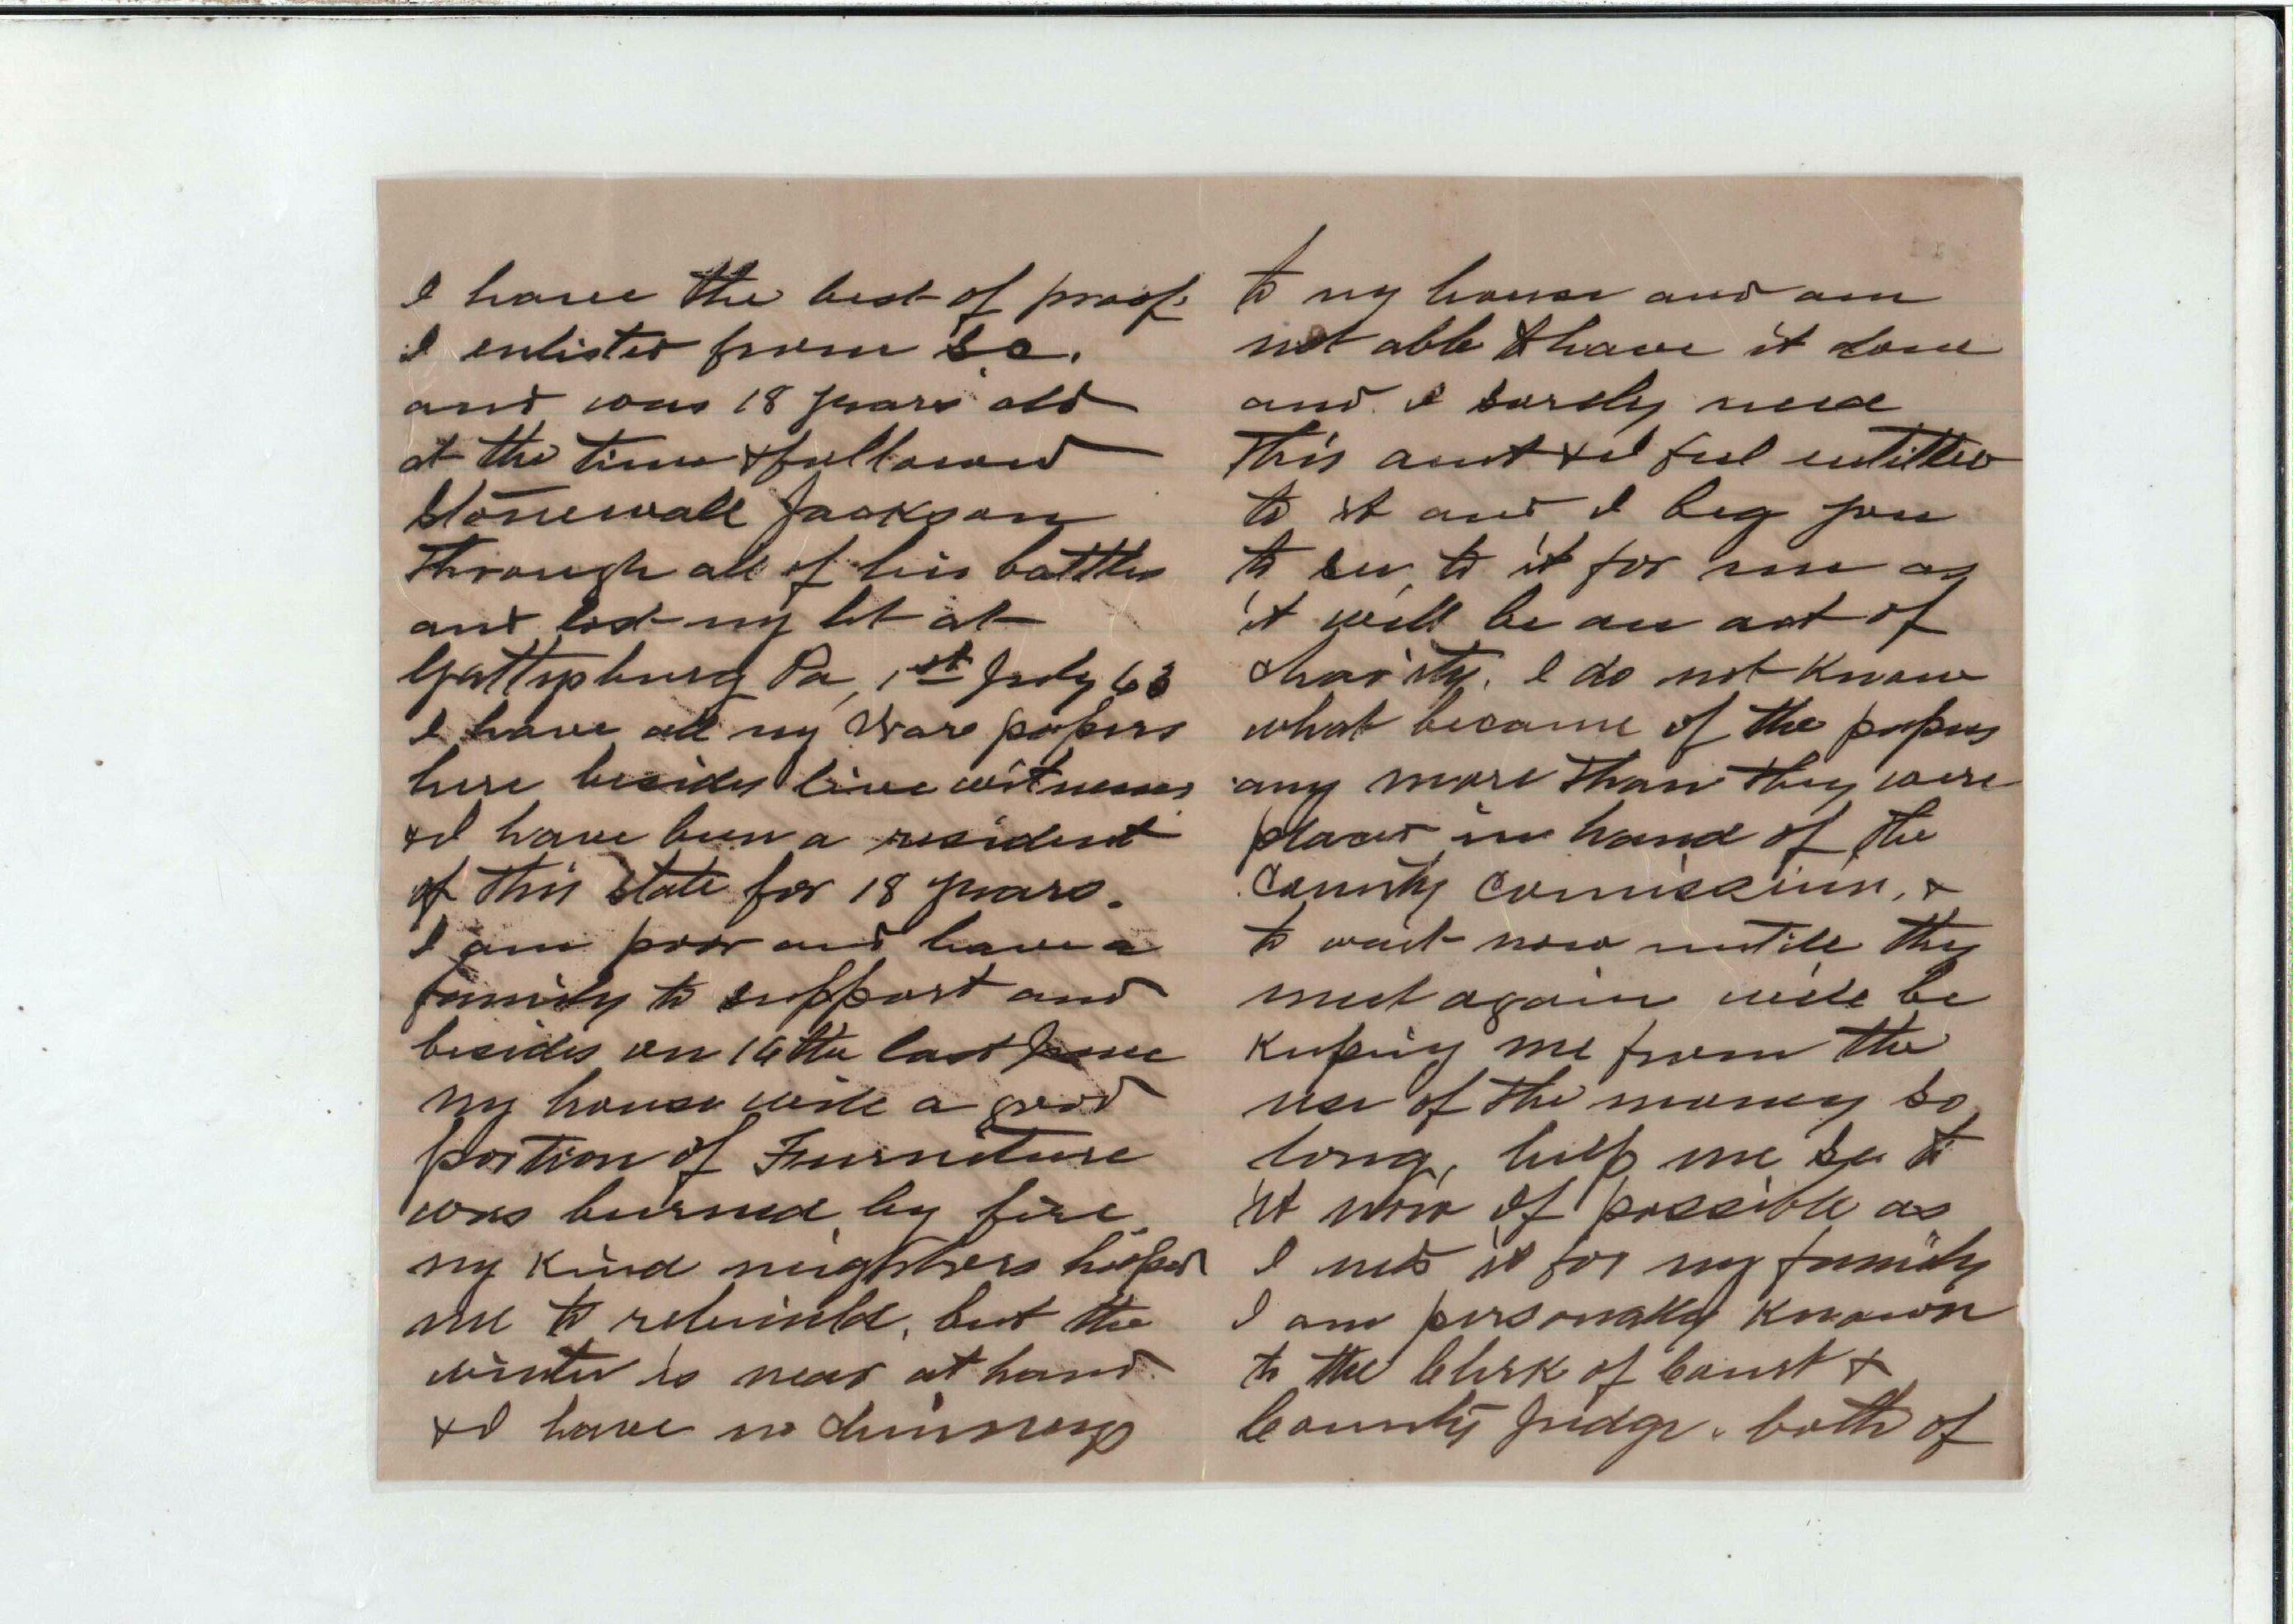 I have the best of proof.
I enlisted from S.C.
and was 18 years old
at the time & followed
Stonewall Jackson
through all of his battles
and lost my at
Gettysburg Pa, 1st July 63
I have all my War papers
here besides live witnesses
& I have been a resident
of this State for 18 years.
I am poor and have a
family to support and
besides on 16th last June
my house with a good
portion of Furniture
was burned by fire.
my kind neighbors helped
me to rebuild, but the
winter is near at hand
& I have no chimney
to my house and am
not able to have it done
and I surely need
this amt & I feel entitled
to it and I beg you
to see to it for me as
it will be an act of
charity. I do not know
what became of the papers
any more than they were
placed in hand of the
County Comission, &
to wait now untill they
meet again will be
keeping me from the
use of the money so
long, help me see to
it now if possible as
I need it for my family
I am personally known
to the Clerk of Court &
County Judge. both of